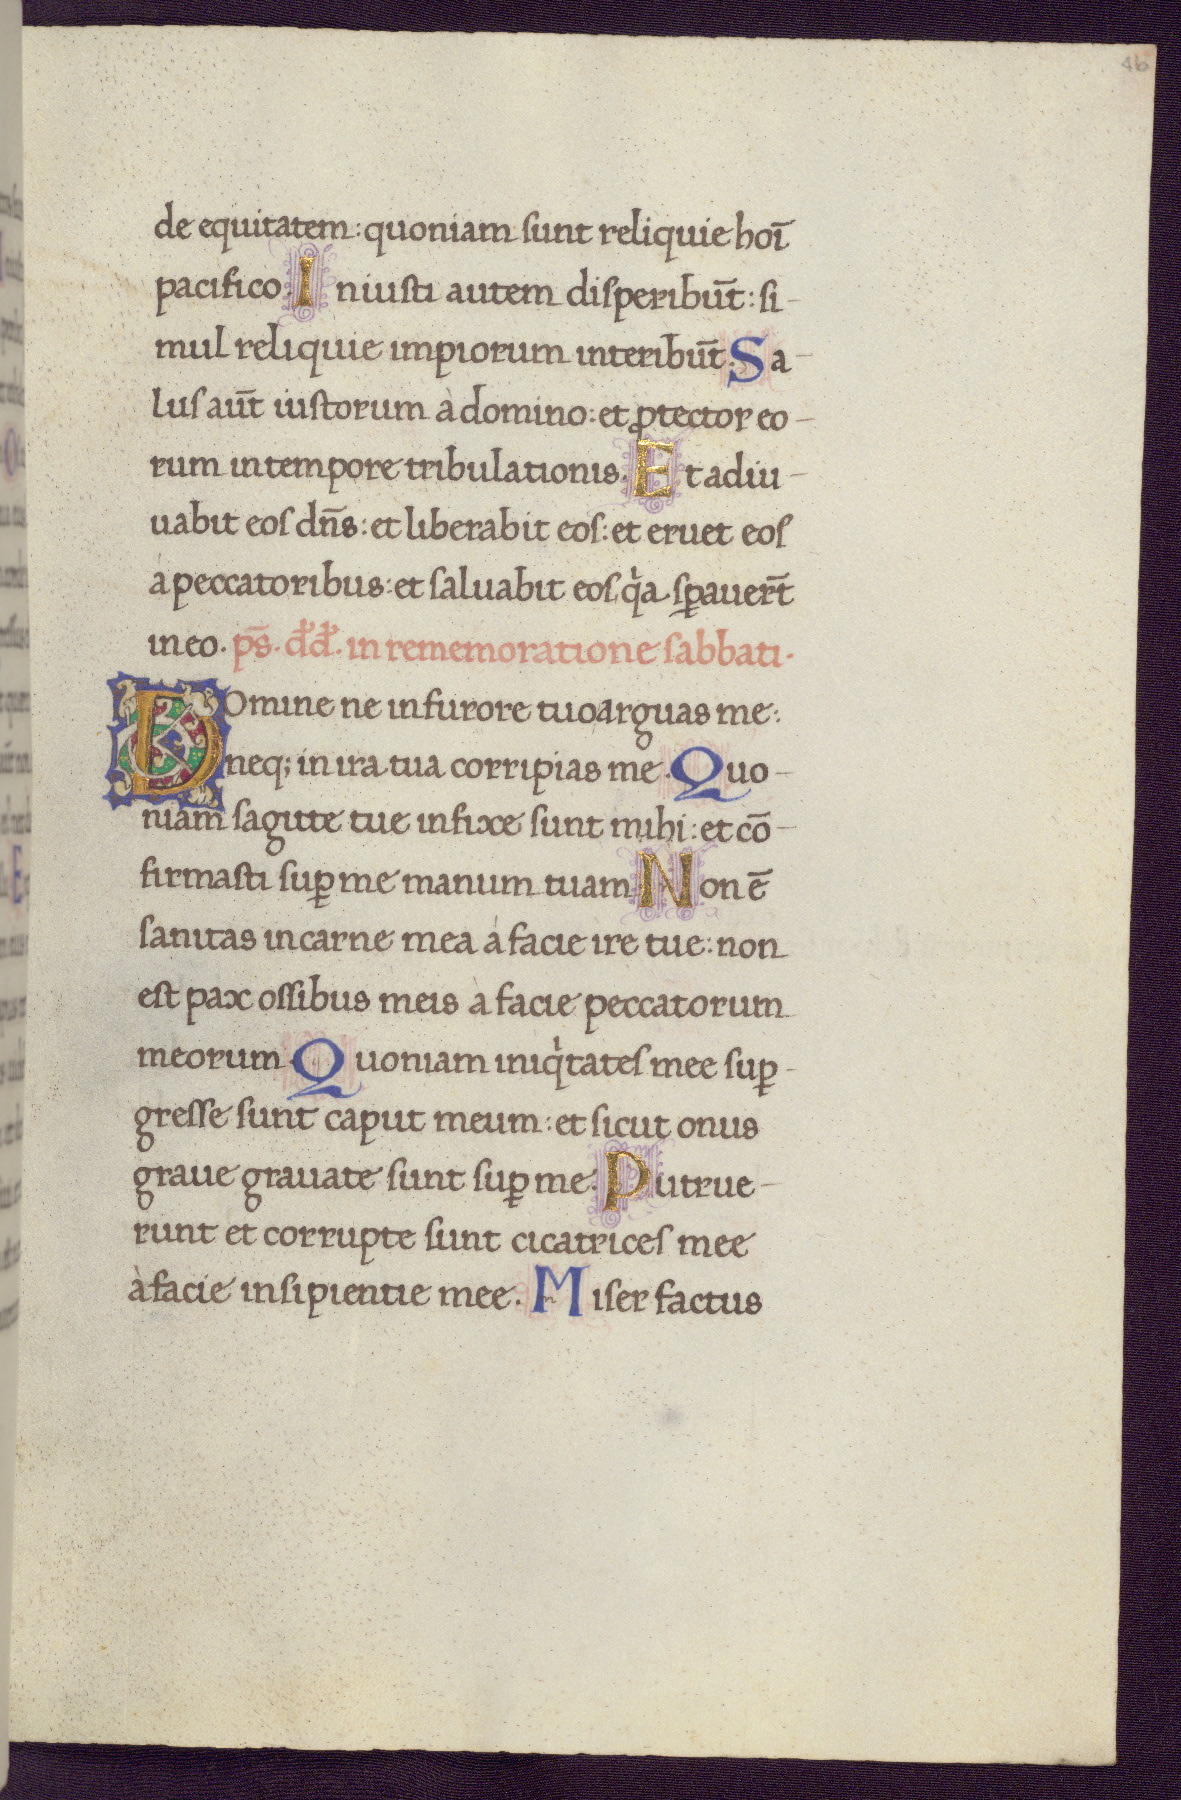 46
de equitatem: quoniam sunt reliquie hoī
pacifico. Iniusti autem disperibūt: si-
mul reliquie impiorum interibūt. Sa-
lus aūt iustorum à domino: et ꝓtector eo-
rum in tempore tribulationis. Et adiu-
uabit eos dn̄s: et liberabit eos: et eruet eos
á peccatoribus: et saluabit eos qͥa sꝑauer̄t
in eo. ps̄. dͩd. in rememoratione sabbati.
DOmine ne in furore tuo arguas me:
neq; in ira tua corripias me. Quo-
niam sagitte tue infixe sunt mihi: et cō-
firmasti suꝑ me manum tuam. Non ē
sanitas in carne mea á facie ire tue: non
est pax ossibus meis à facie peccatorum
meorum. Quoniam iniqͥtates mee suꝑ-
gresse sunt caput meum: et sicut onus
graue grauate sunt suꝑ me. Putrue-
runt et corrupte sunt cicatrices mee
à facie insipientie mee. Miser factus